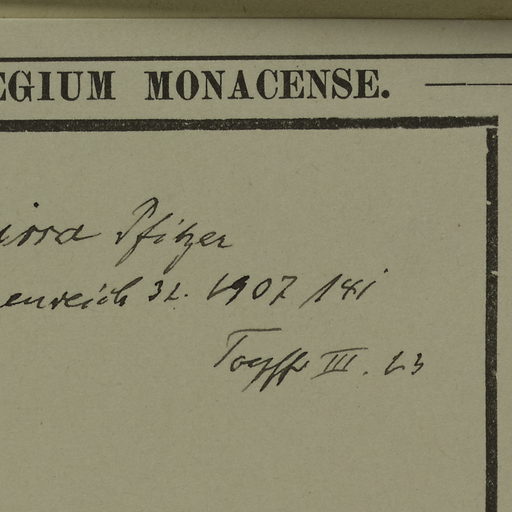 EGIUM MONACENSE.
issa Pfitzer
enreich 32. 1907 181
III. 23